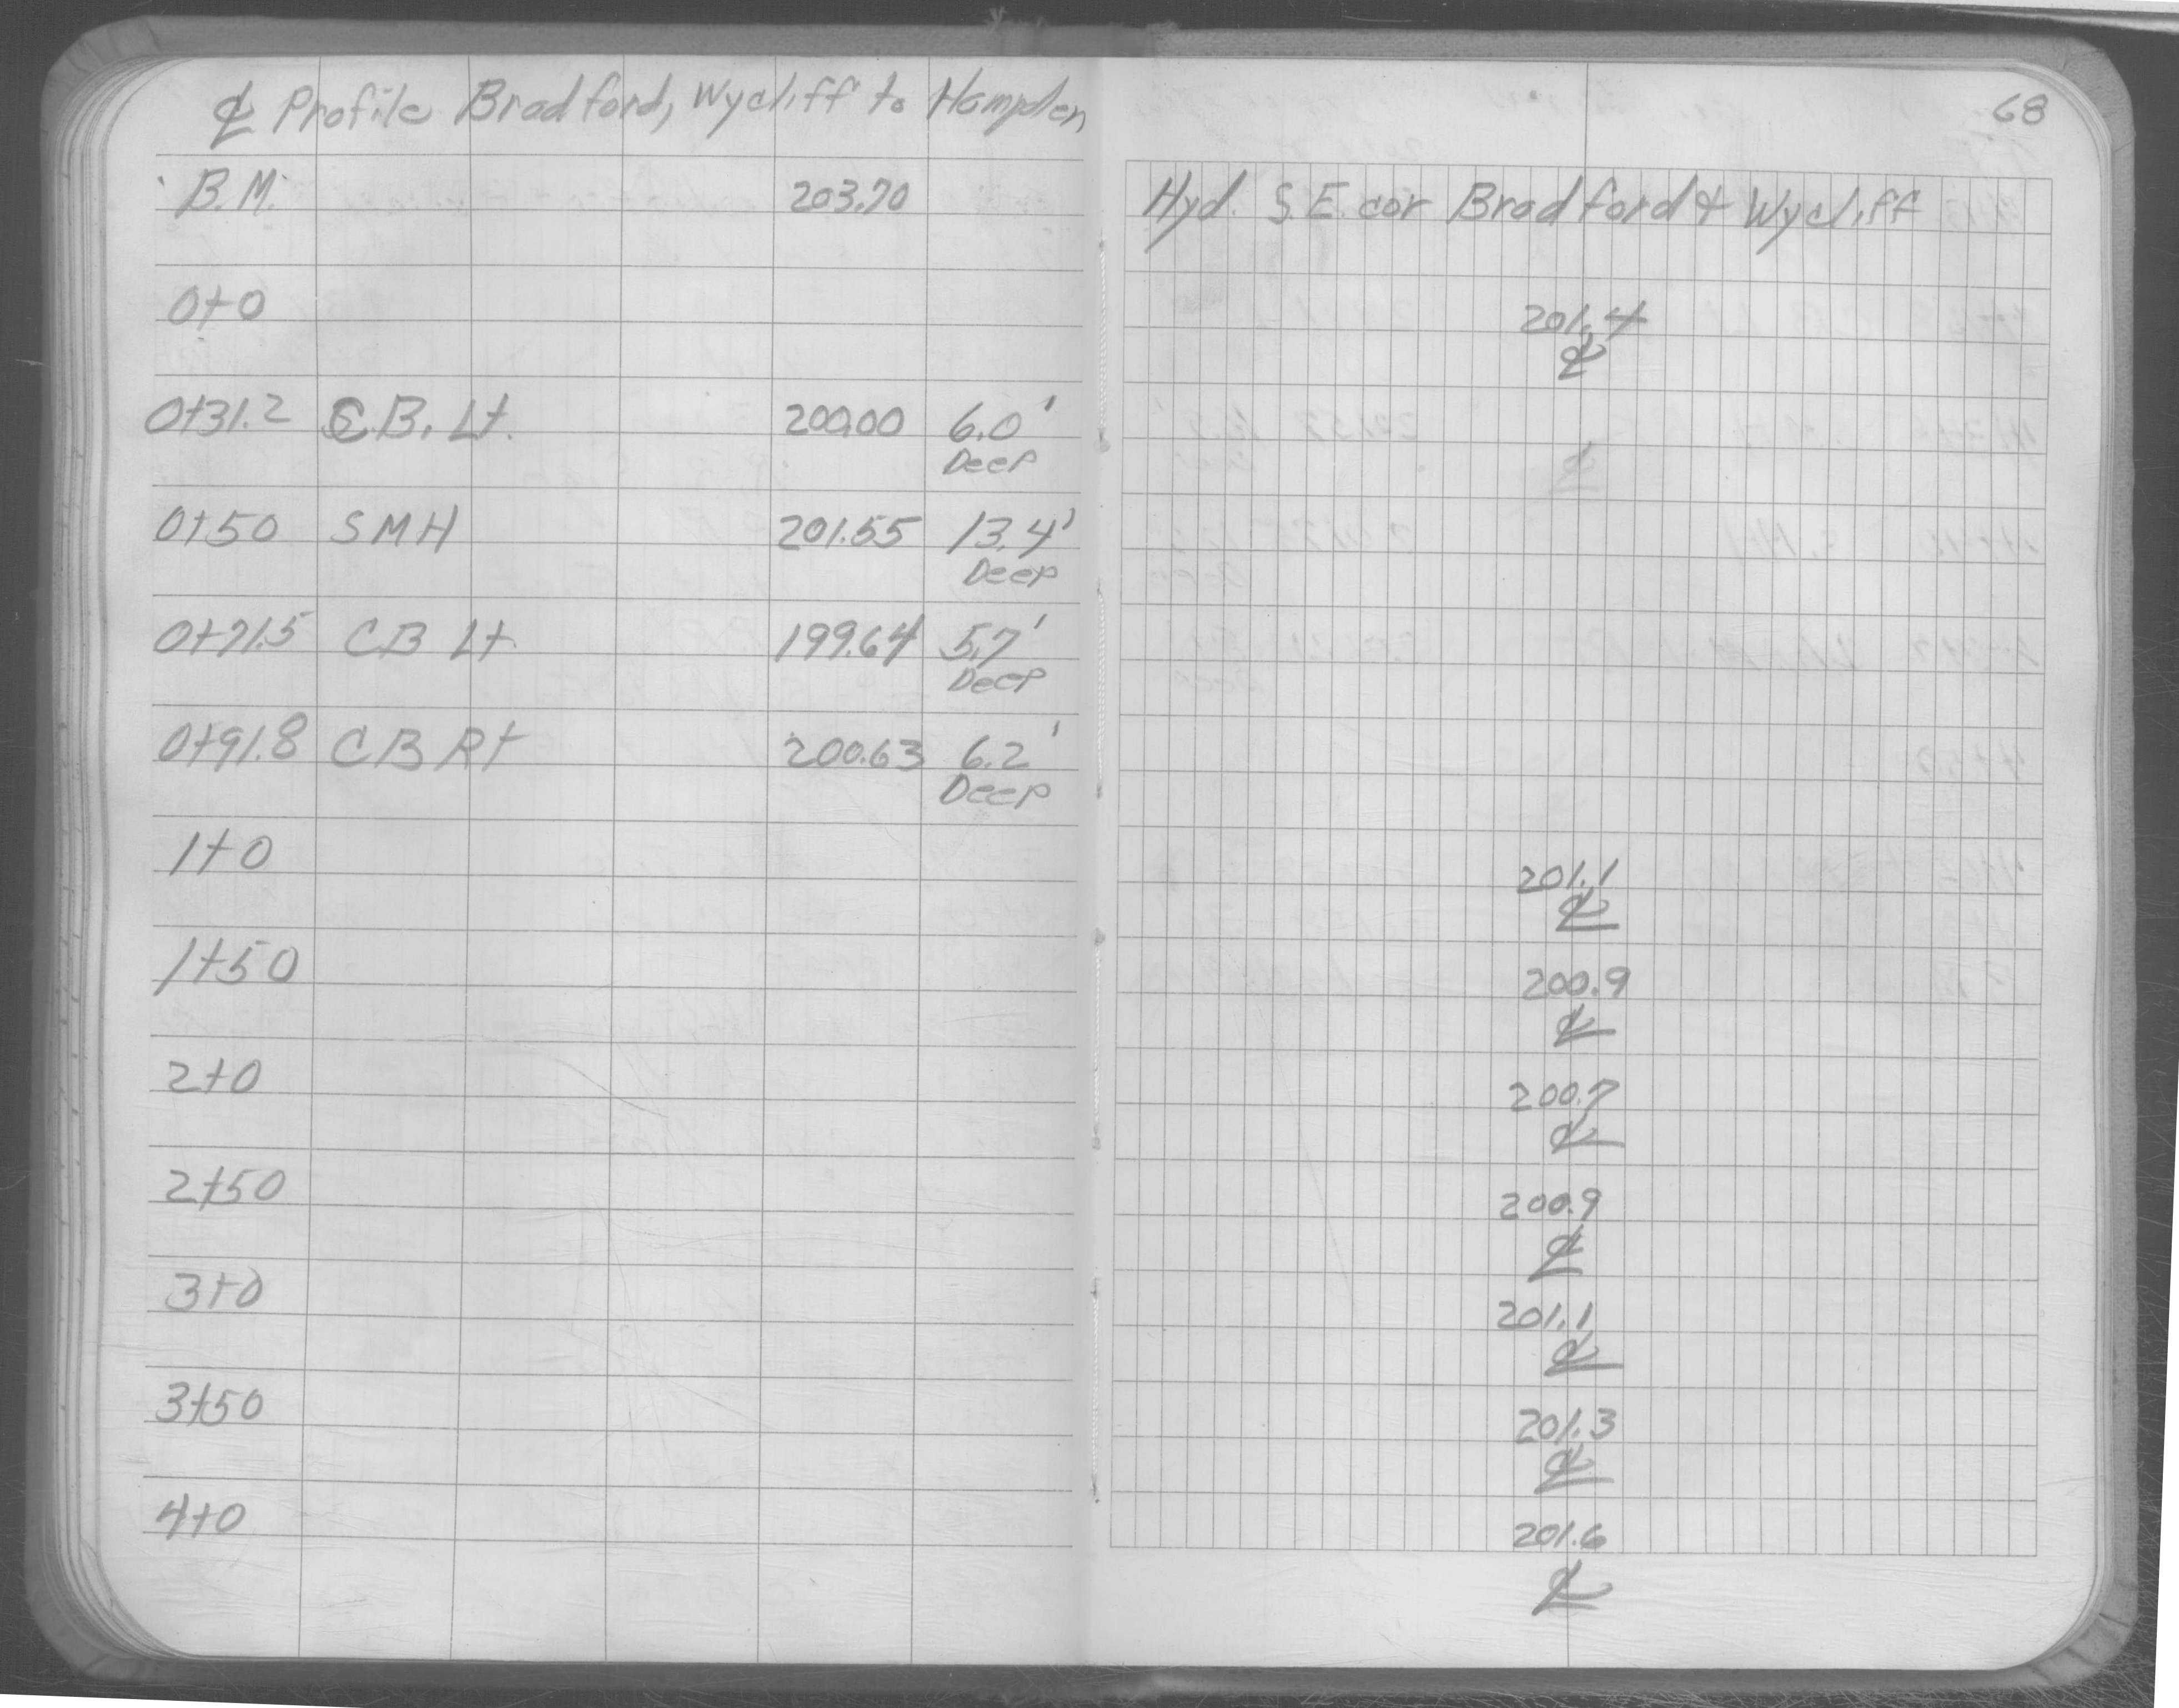 ℄ Profile Bradford, Wycliff to Hampden
68
B.M. 203.70 Hyd. S.E. cor Bradford & Wycliff
0+0 201.4
℄
0+31.2 C.B. Lt. 200.00 6.0'
Deep
0+50 SMH 201.55 13.4'
Deep
0+71.5 CB Lt 199.64 5.7'
Deep
0+91.8 CB Rt 200.63 6.2'
Deep
1+0 201.1
℄
1+50 200.9
℄
2+0 200.7
℄
2+50 200.9
℄
3+0 201.1
℄
3+50 201.3
℄
4+0 201.6
℄